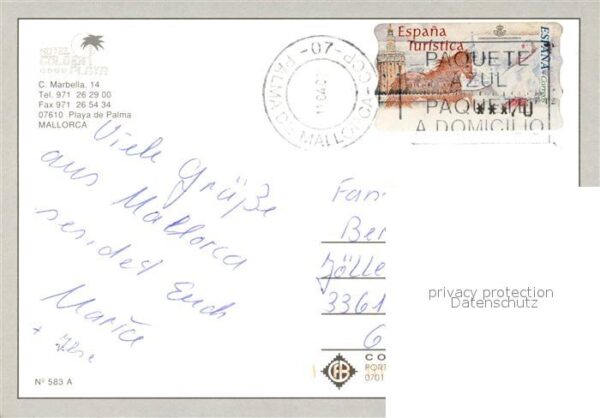 HOTEL
GOLDEN
PLAYA
C. Marbella, 14
Tel. 971 26 29 00
Fax 971 26 54 34
07610 Playa de Palma
MALLORCA
España
Turística
ESPAÑA
correos
-07-
PALMA DE MALLORCA-CCP
PAQUETE
AZUL
PAQUE
A DOMICILIO
***70
Viele Grüße
aus Mallorca
sendet Euch
Marice
Fam
Ber
Jölle
3361
G
privacy protection
Datenschutz
FB
CO
POR
0701
Nº 583 A